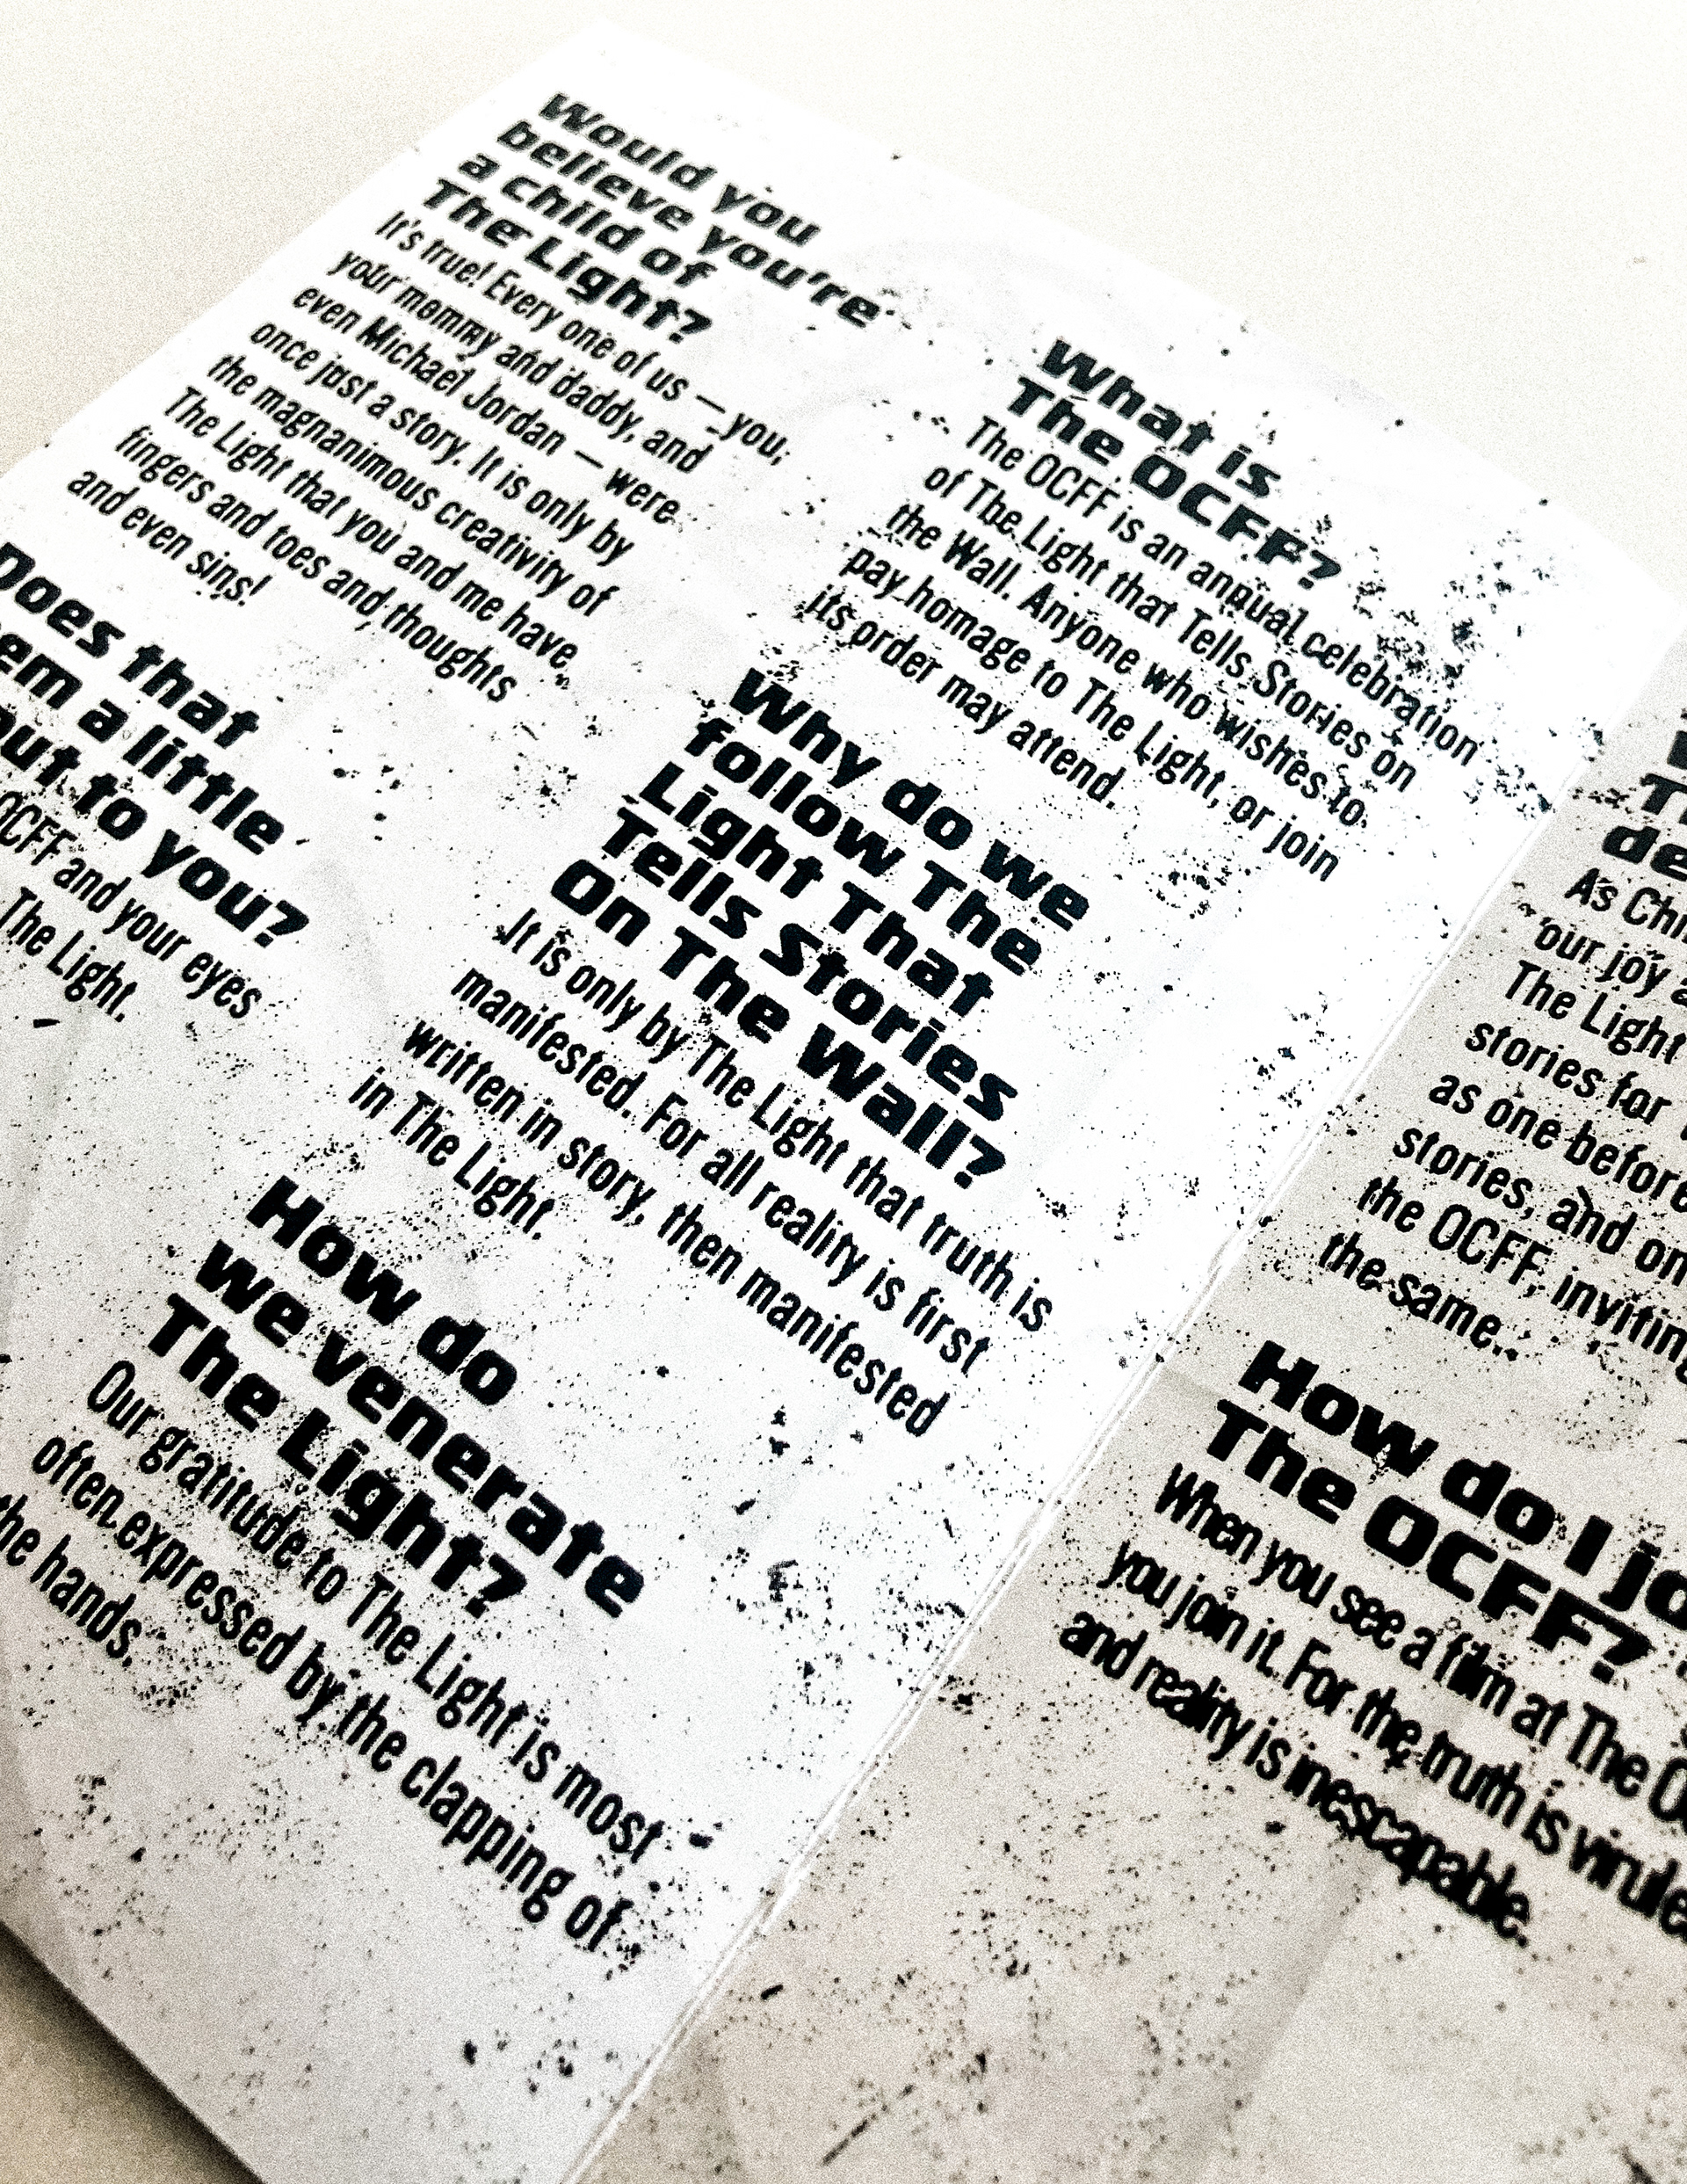 Would you
believe you're
a child of
The Light?
It's true! Every one of us — you,
your mommy and daddy, and
even Michael Jordan — were
once just a story. It is only by
the magnanimous creativity of
The Light that you and me have
fingers and toes and thoughts
and even sins!
Does that
a little
to you?
OCFF and your eyes
The Light.
What is
The OCFF?
The OCFF is an annual celebration
of The Light that Tells Stories on
the Wall. Anyone who wishes to
pay homage to The Light, or join
its order may attend.
Why do we
follow The
Light That
Tells Stories
On The Wall?
It is only by The Light that truth is
manifested. For all reality is first
written in story, then manifested
in The Light.
How do
we venerate
The Light?
Our gratitude to The Light is most
often expressed by the clapping of
the hands.
As
our joy
The Light
stories for
as one before
stories, and
the OCFF, inviting
the same.
How do I
The OCFF?
When you see a film at The
you join it. For the truth is
and reality is inescapable.